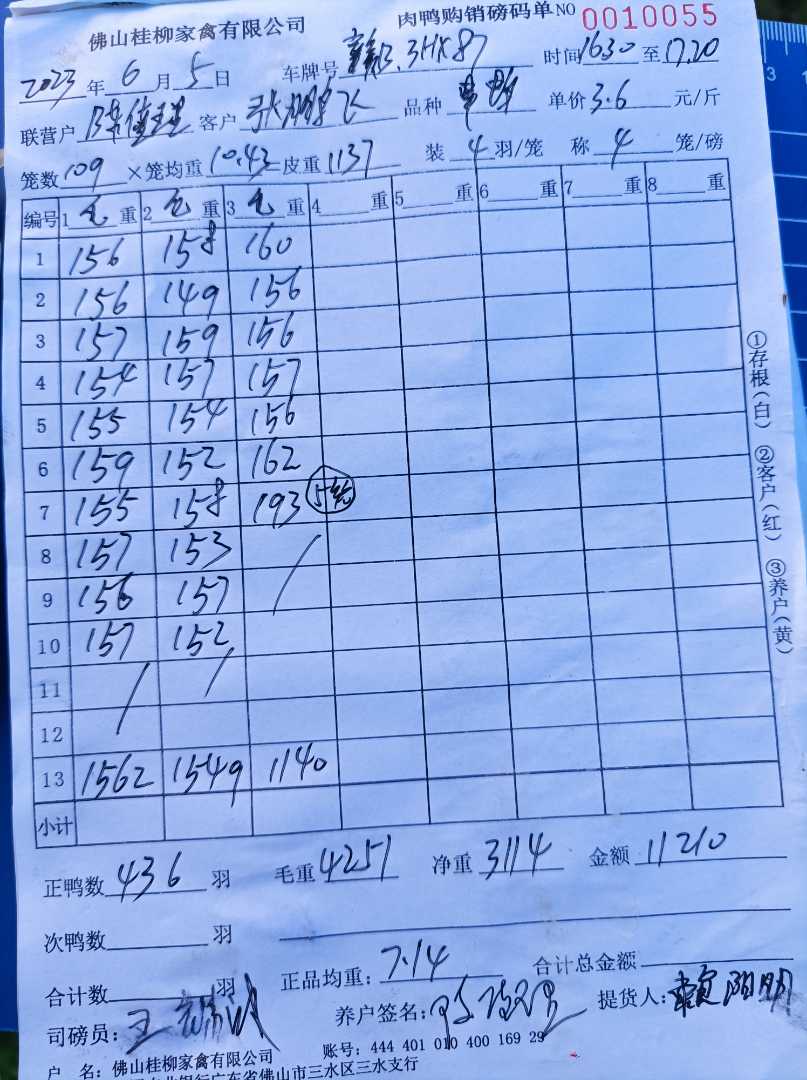 佛山桂柳家禽有限公司 肉鸭购销磅码单 NO 0010055
2023年6月5日 车牌号 3HX87 时间1630至17.20
联营户 客户 张鹏飞 品种 单价3.6元/斤
笼数109×笼均重10.43皮重1137 装4羽/笼 称4笼/磅
编号 1毛重 2毛重 3毛重 4重 5重 6重 7重 8重
1 156 158 160
2 156 149 156
3 157 159 156
4 154 157 157
5 155 154 156
6 159 152 162
7 155 158 193 5笼
8 157 153 /
9 156 157
10 157 152
11 / /
12
13 1562 1549 1140
小计
正鸭数436羽 毛重4251 净重3114 金额11210
次鸭数 羽
合计数 羽 正品均重:7.14 合计总金额
司磅员: 王 养户签名: 提货人:
户 名:佛山桂柳家禽有限公司 账号:444 401 010 400 169 29
广东省佛山市三水区三水支行
①存根(白) ②客户(红) ③养户(黄)